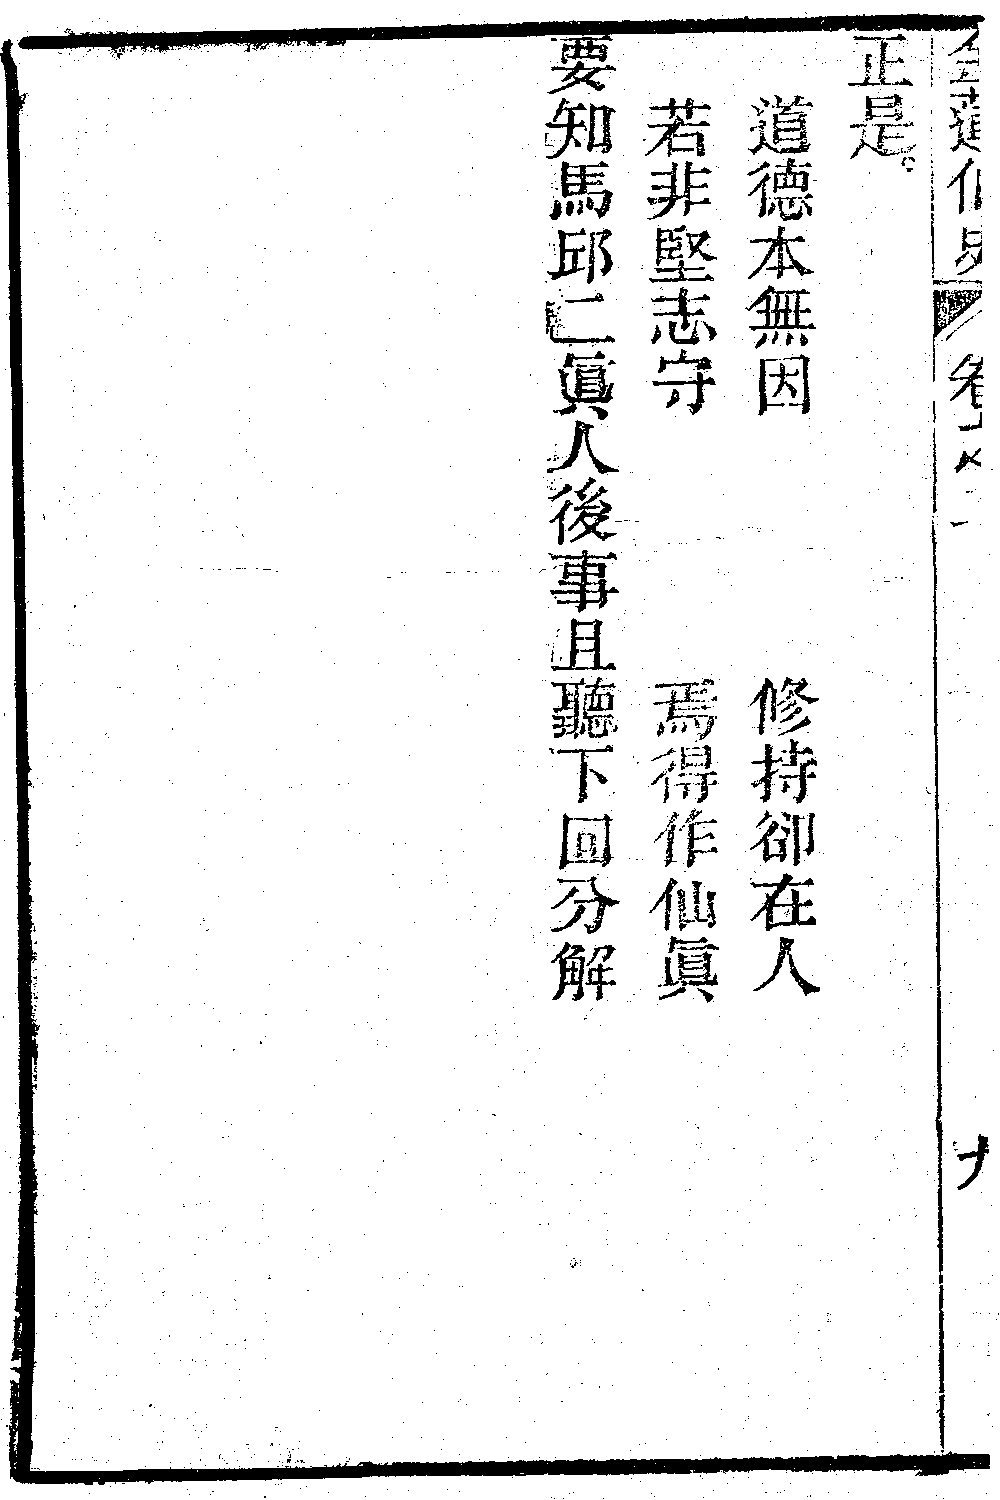 正是。
道德本無因　修持卻在人
若非堅志守　焉得作仙眞
要知馬邱二眞人後事且聽下回分解